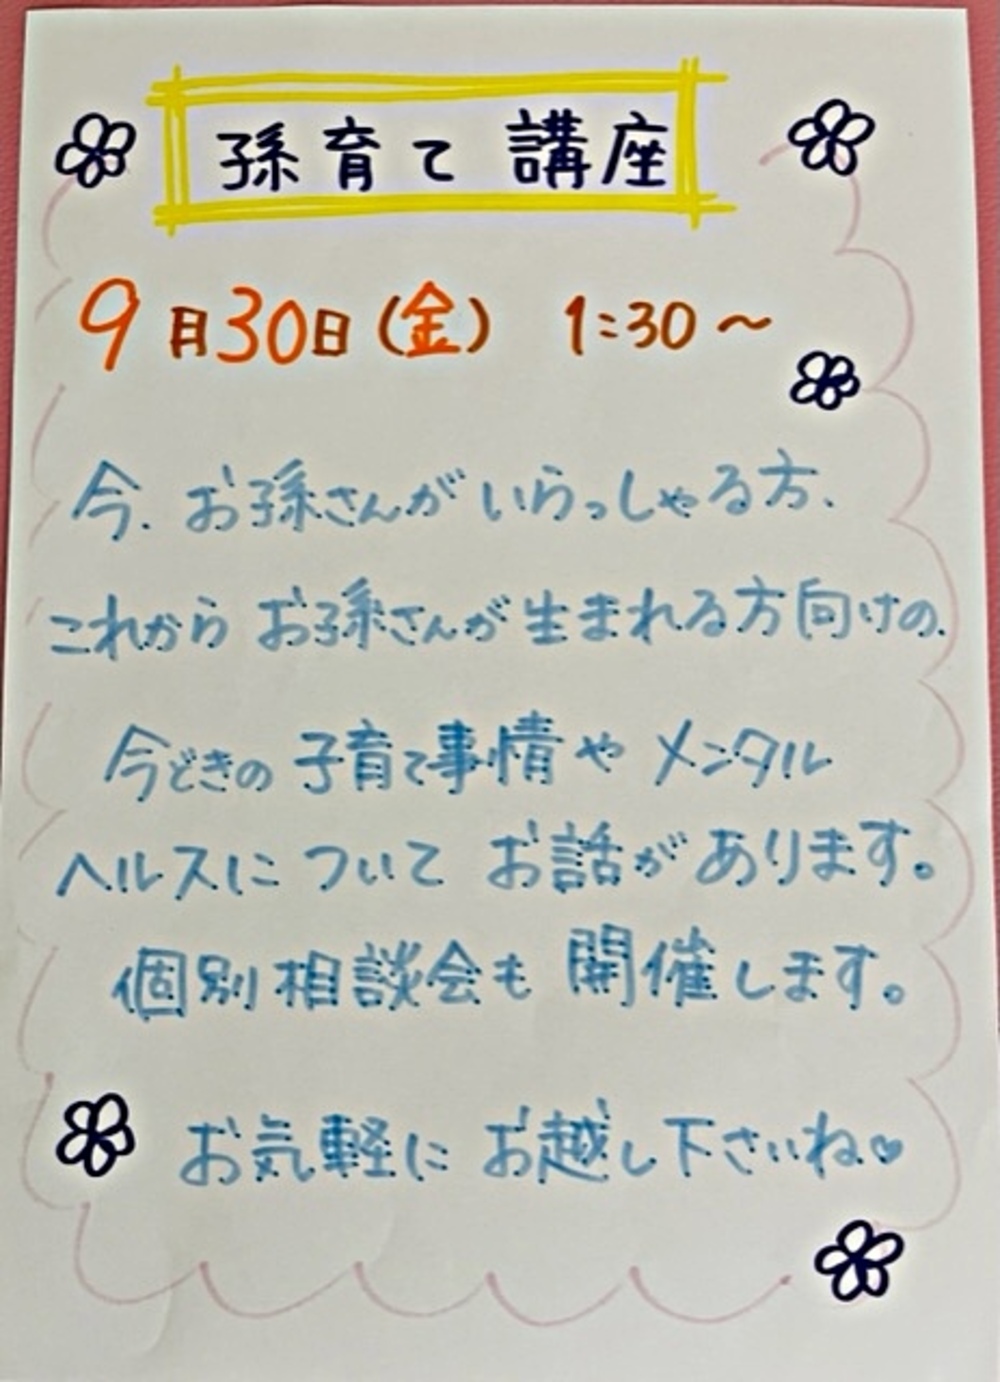 孫育て講座
9月30日(金) 1:30～
今、お孫さんがいらっしゃる方、
これからお孫さんが生まれる方向けの、
今どきの子育て事情やメンタル
ヘルスについてお話があります。
個別相談会も開催します。
お気軽にお越し下さいね♡